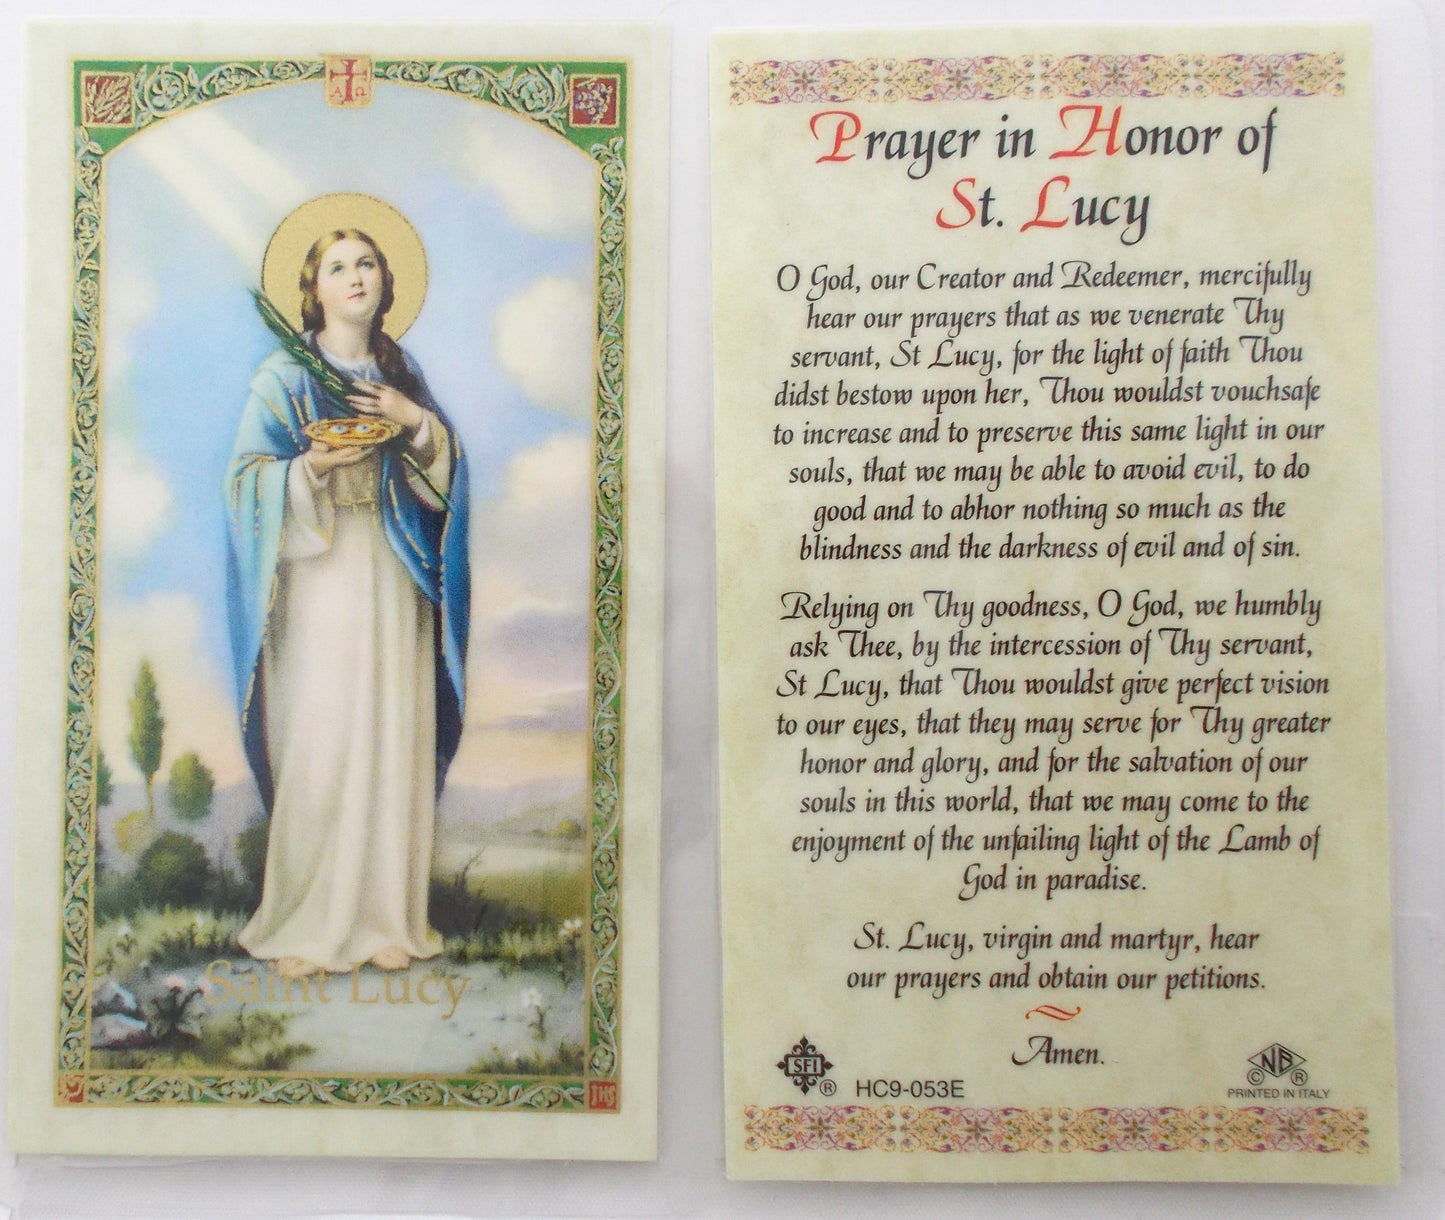 A Ω
Saint Lucy
IHS
Prayer in Honor of
St. Lucy
O God, our Creator and Redeemer, mercifully
hear our prayers that as we venerate Thy
servant, St Lucy, for the light of faith Thou
didst bestow upon her, Thou wouldst vouchsafe
to increase and to preserve this same light in our
souls, that we may be able to avoid evil, to do
good and to abhor nothing so much as the
blindness and the darkness of evil and of sin.
Relying on Thy goodness, O God, we humbly
ask Thee, by the intercession of Thy servant,
St Lucy, that Thou wouldst give perfect vision
to our eyes, that they may serve for Thy greater
honor and glory, and for the salvation of our
souls in this world, that we may come to the
enjoyment of the unfailing light of the Lamb of
God in paradise.
St. Lucy, virgin and martyr, hear
our prayers and obtain our petitions.
Amen.
SFI ® HC9-053E
NB
© ®
PRINTED IN ITALY